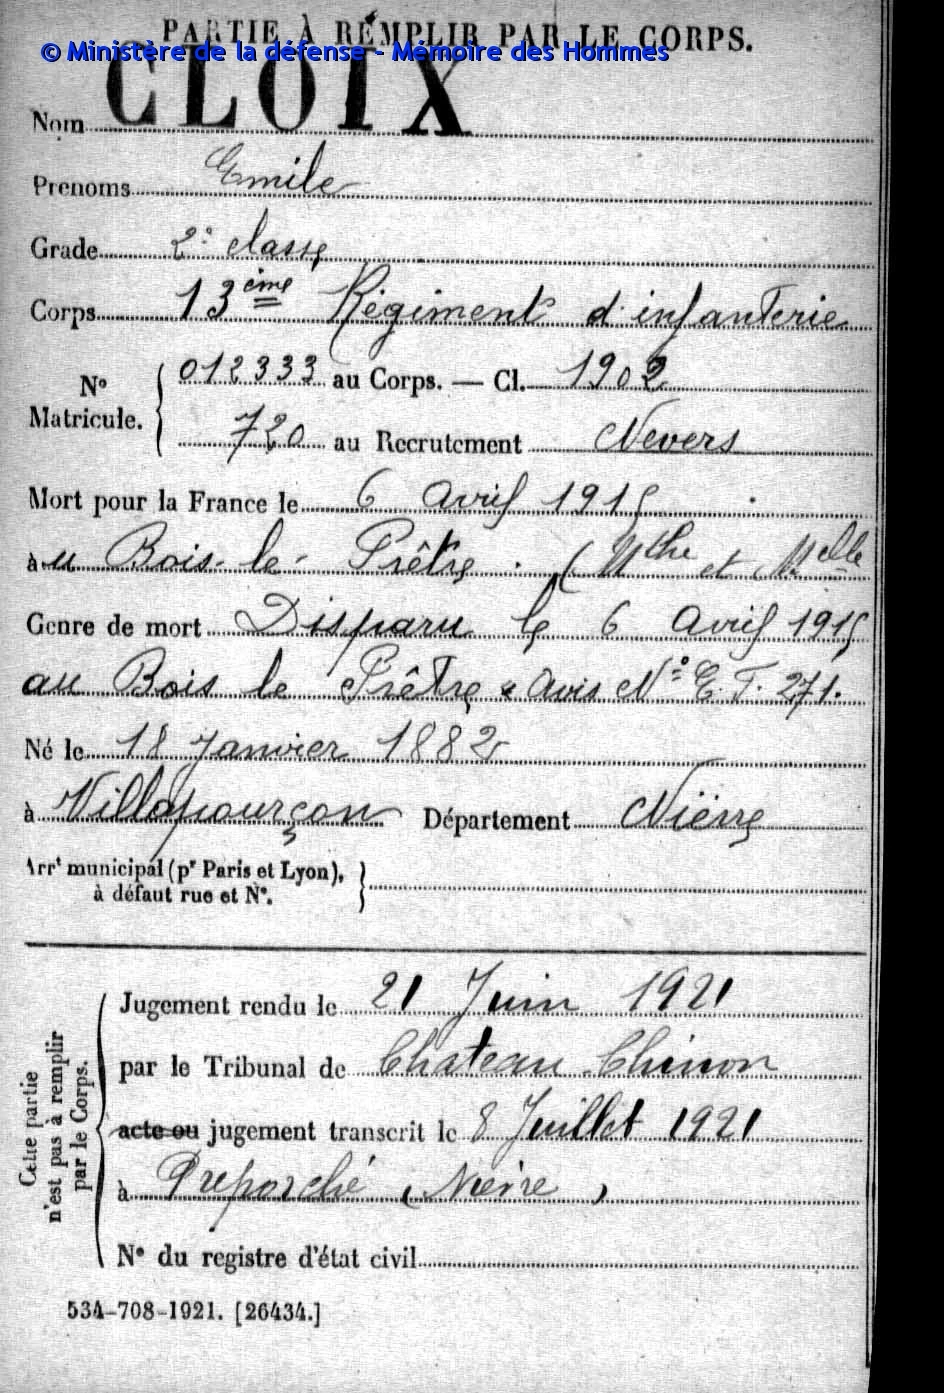 PARTIE À REMPLIR PAR LE CORPS.
© Ministère de la défense - Mémoire des Hommes
Nom CLOIX
Prénoms Emile
Grade 2e classe
Corps 13ème Régiment d'infanterie
No Matricule. { 012333 au Corps. — Cl. 1902
720 au Recrutement Nevers
Mort pour la France le 6 avril 1915
à u Bois-le-Prêtre. (Mthe et Melle
Genre de mort Disparu le 6 avril 1915
au Bois le Prêtre. avis No E. T. 271.
Né le 18 Janvier 1882
à Villapourçon Département Nièvre
Arrt municipal (pr Paris et Lyon), }
à défaut rue et No.
Cette partie
n'est pas à remplir
par le Corps.
Jugement rendu le 21 Juin 1921
par le Tribunal de Chateau-Chinon
acte ou jugement transcrit le 8 Juillet 1921
à Préporché (Nièvre)
No du registre d'état civil
534-708-1921. [26434.]